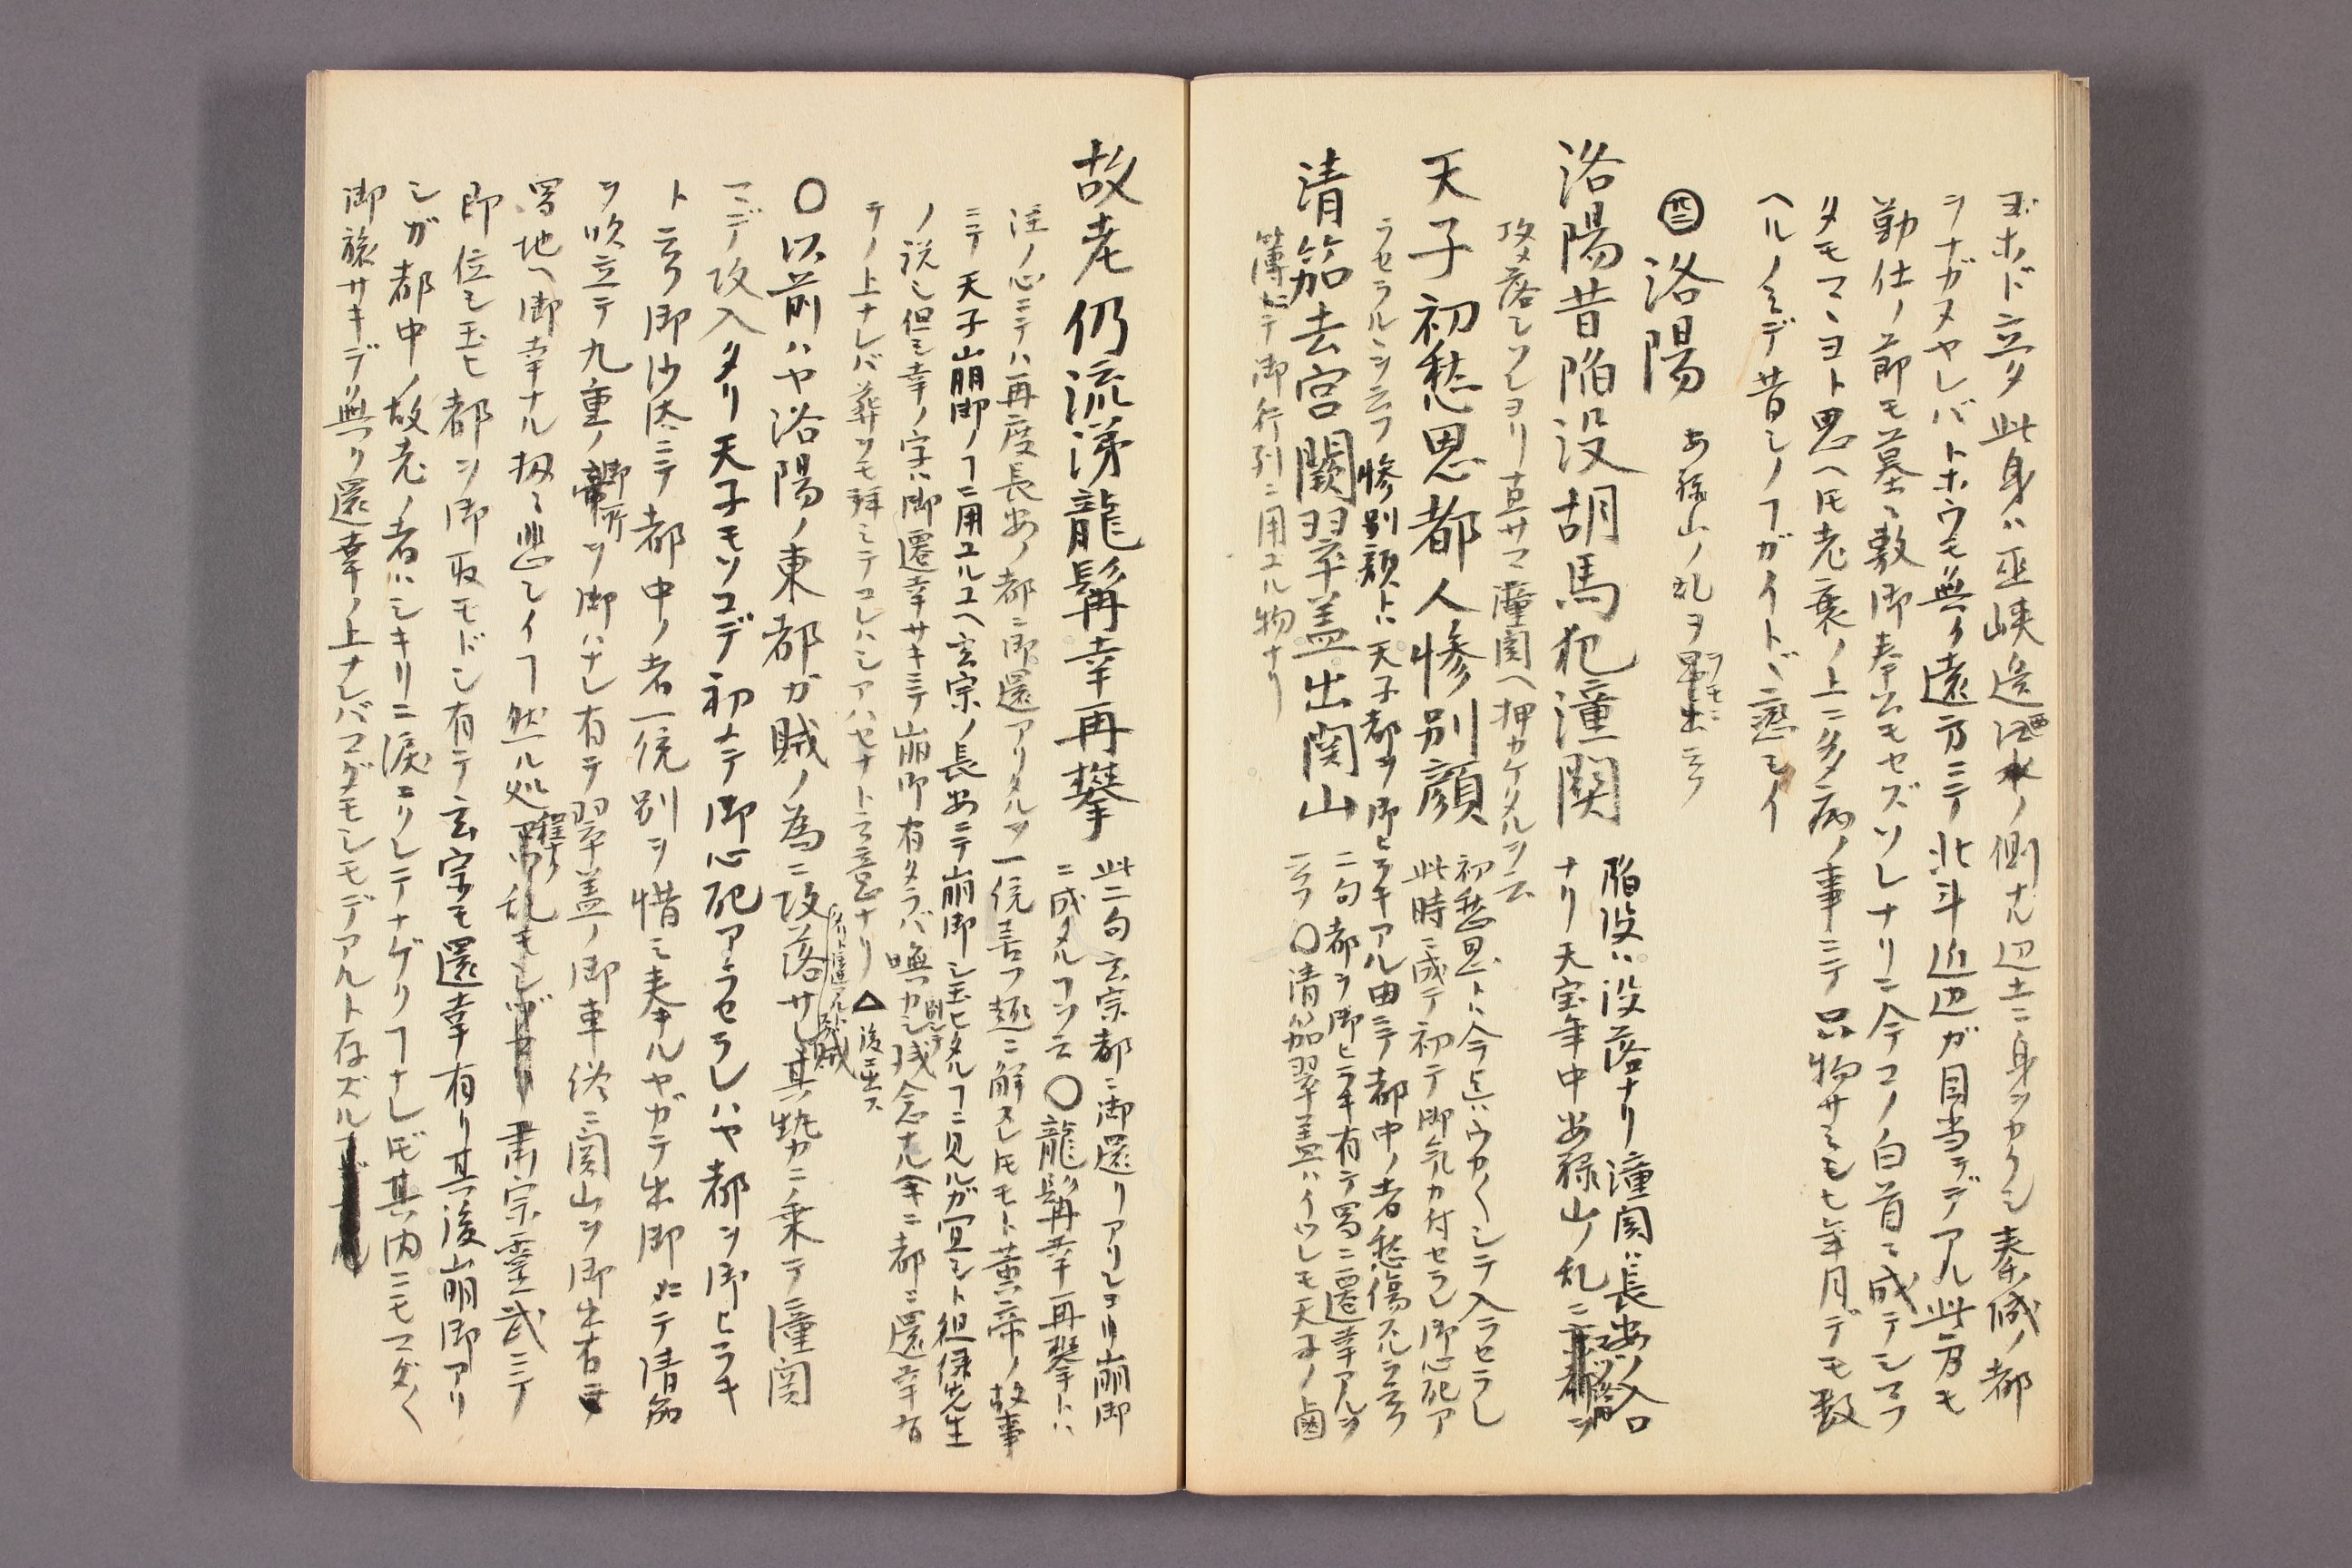 ヨホド立タ此身ハ巫峡邉江水ノ側ナル辺土ニ身ツカクシ秦城ノ都
ヲナガヌヤレバトホウモ無ク遠方ニテ北斗近辺ガ目当デアル此方モ
勤仕ノ節モ墓々敷御奉公モセズソレナリニ今コノ白首ニ成テシマフ
タモマヽヨト思ヘ𪜈老衰ノ上ニ多病ノ事ニテ品物サミモヒ年月デモ数
ヘルノミデ昔シノヿガイトヾ恋シイ
洛陽 安禄山ノ乱ヲ云
洛陽昔陥没胡馬犯潼関
陥没ハ没落ナリ潼関ハ長安ノ入口
ナリ天宝年中安禄山ノ乱ニ
攻メ落シソレヨリ直サマ潼関ヘ押カケタルヲ云
天子初愁思都人惨別顔
初愁思トハ今迄ハウカ〱シテ入ラセラレ
此時ニ成テ初テ御気カ付セラレ御心死ア
ラセラルヽヲ云フ惨別顔トハ天子都ヲ御ヒラキアル由ニテ都中ノ者愁傷スルヲ云
清笳去宮闕翠盖出関山
二句都ヲ御ヒラキ有テ蜀ニ遷幸アルヲ
云フ〇清笳翠盖ハイツレモ天子ノ鹵
簿ニテ御行列ニ用ユル物ナリ
故老仍流涕龍髯幸再攀
此二句玄宗都ニ御還リアリシヨリ崩御
ニ成タルヿヲ云〇龍髯幸再攀トハ
注ノ心ニテハ再度長安ノ都ニ御還アリタルヲ一統喜フ趣ニ解スレ𪜈モト黄帝ノ故事
ニテ天子崩御ノヿニ用ユルユヘ玄宗ノ長安ニテ崩御シ玉ヒタルヿニ見ルガ宜シト徂徠先生
ノ説シ但シ幸ノ字ハ御遷幸サキニテ崩御有タラバ嘸カシ残念ナルベキニ都ニ還幸有
テノ上ナレバ葬ツモ拝ミテコレハシアハセナト云意ナリ△後ニ出ス
〇以前ハヤ洛陽ノ東都ガ賊ノ為ニ攻落サレ其勢カニ乗テ潼関
マデ攻入タリ天子モソコデ初メテ御心死アラセラレハヤ都ヲ御ヒラキ
ト云御沙汰ニテ都中ノ者一統別ヲ惜ミ奉ルヤガテ出御ニテ清笳
ヲ吹立テ九重ノ御所ヲ御ハナレ有テ翠盖ノ御車終ニ関山ヲ御出有テ
蜀地ヘ御幸ナル扨々悲シイヿ然ル処程ナク粛宗霊武ニテ
即位シ玉ヒ都ヲ御取モドシ有テ玄宗モ還幸有リ其後崩御アリ
シガ都中ノ故老ノ者ハシキリニ涙ニクレテナゲクヿナレ𪜈其内ニモマダ〱
御旅サキデ無ク還幸ノ上ナレバマダモシモデアルト存ズル